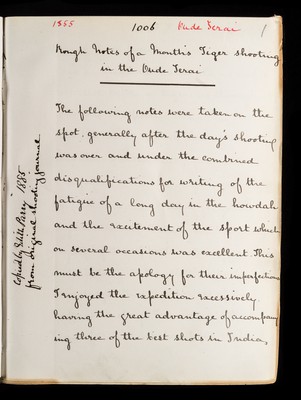 1855 1006 Oude Terai 1
Rough Notes of a Month's Tiger shooting
in the Oude Terai
The following notes were taken on the
spot, generally after the day's shooting
was over and under the combined
disqualifications for writing of the
fatigue of a long day in the howdah
and the excitement of the sport which
on several occasions was excellent. This
must be the apology for their imperfections
I enjoyed the expedition excessively
having the great advantage of accompany
ing three of the best shots in India,
Copied by Edith Parry 1885
from original shooting journal